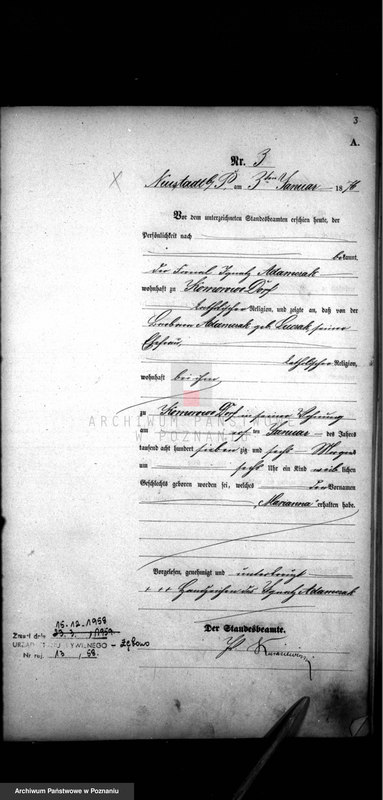 3
A.
Nr. 3
Neustadt b/P. am 3ten Januar 1876
Vor dem unterzeichneten Standesbeamten erschien heute, der
Persönlichkeit nach
bekannt,
der Fornal Ignatz Adamczak
wohnhaft zu Komorowo Dorf
katholischer Religion, und zeigte an, daß von der
Adamczak geb. seiner
Ehefrau,
katholischer Religion,
wohnhaft bei ihm,
zu Komorowo Dorf in seiner Wohnung
am ten Januar des Jahres
tausend acht hundert sieben zig und sechs Morgens
um sechs Uhr ein Kind weiblichen
Geschlechts geboren worden sei, welches den Vornamen
Marianna erhalten habe.
Vorgelesen, genehmigt und unterkreuzt
+ + + Handzeichen des Ignatz Adamczak
Der Standesbeamte.
15.12.1958
Zmarł dnia 23.3.1959
URZĄD STANU CYWILNEGO - Zębowo
Nr rej. 13 / 58.
ARCHIWUM PAŃSTWOWE
W POZNANIU
Archiwum Państwowe w Poznaniu